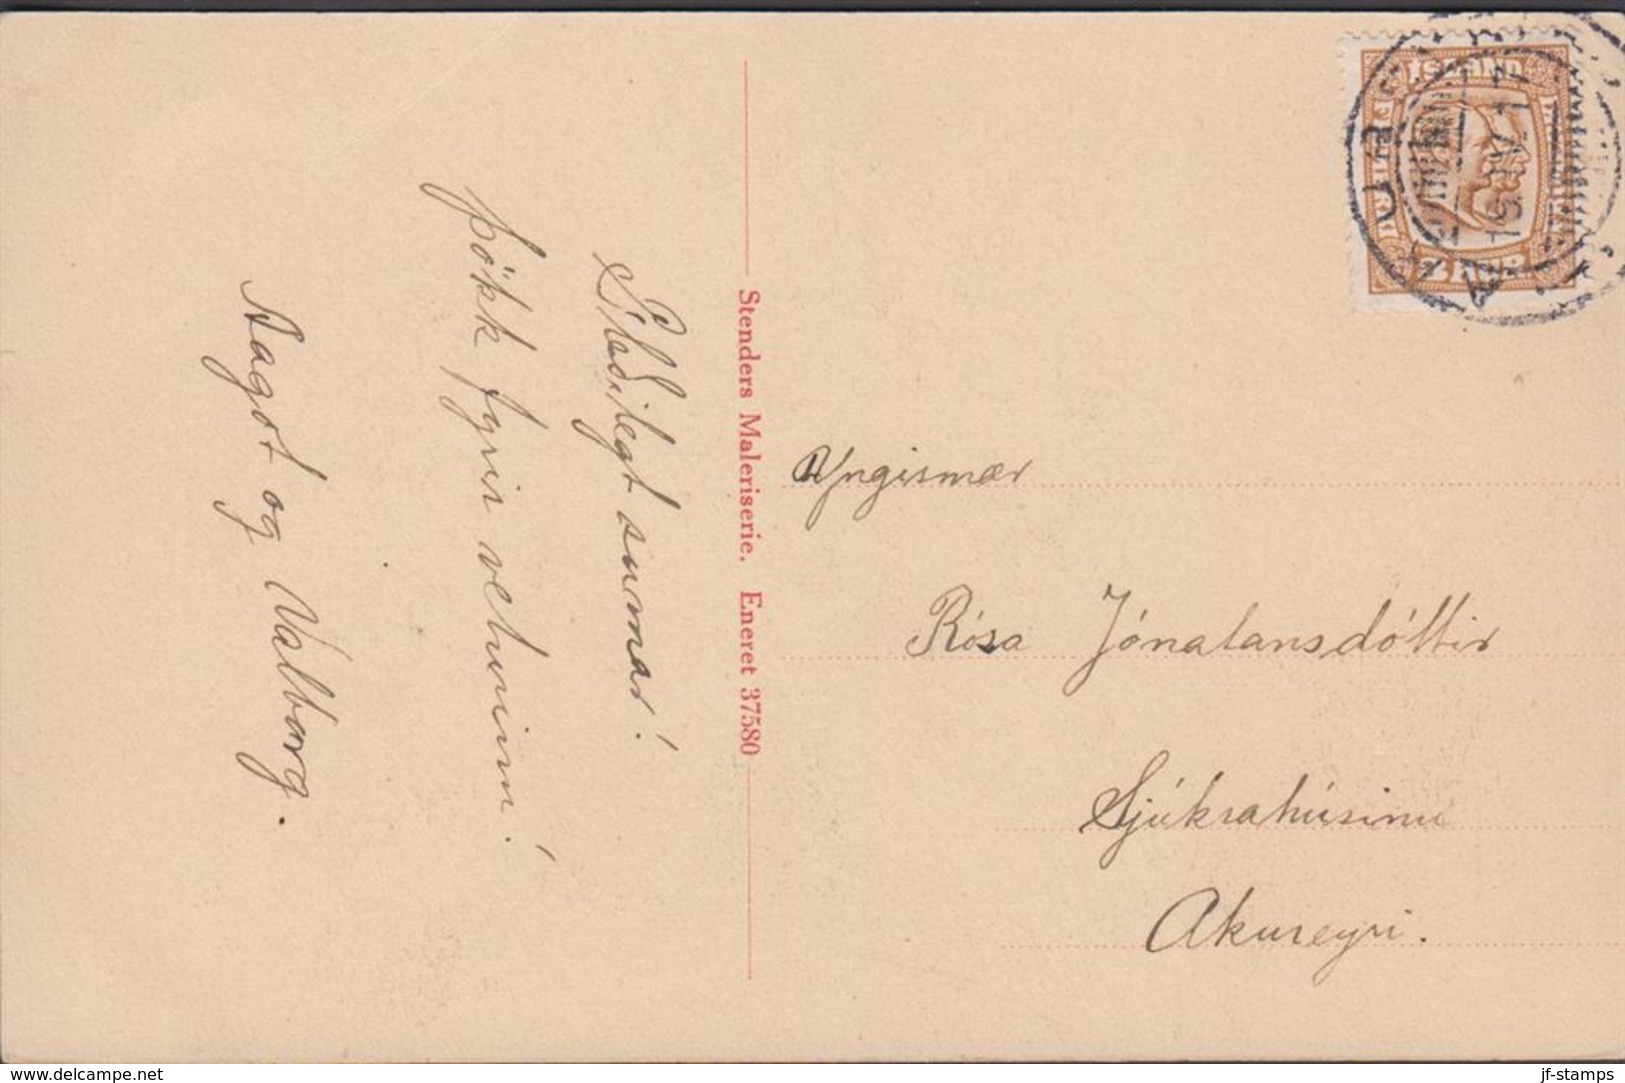 Gleðilegt sumar!
þökk fyrir veturinn!
Aagot og Valborg.
Stenders Maleriserie. Eneret 37580
ÍSLAND
Yngismær
Rósa Jónatansdóttir
Sjúkrahúsinu
Akureyri.
www.delcampe.net
jf-stamps